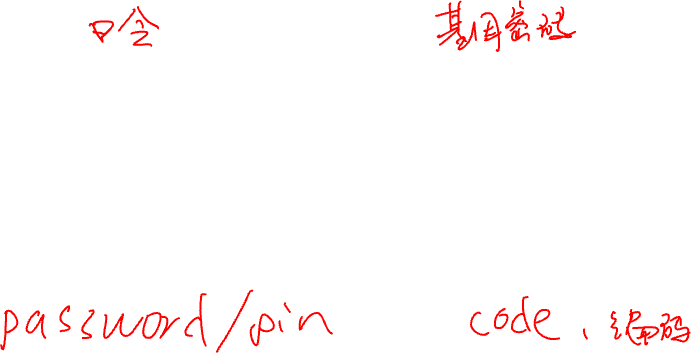 口令 基因密码
password/pin code、编码